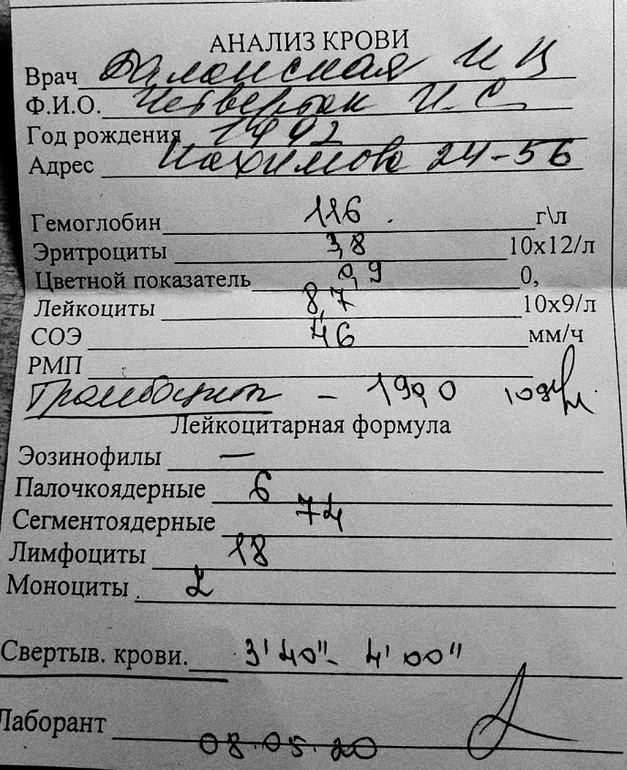 АНАЛИЗ КРОВИ
Врач И Н
Ф.И.О. Четвертак И.С
Год рождения 1992
Адрес Нахимова 24-56
Гемоглобин 116 г\л
Эритроциты 3,8 10х12/л
Цветной показатель 0,9 0,
Лейкоциты 8,7 10х9/л
СОЭ 46 мм/ч
РМП
Тромбоциты - 190,0 109/л
Лейкоцитарная формула
Эозинофилы —
Палочкоядерные 6
Сегментоядерные 74
Лимфоциты 18
Моноциты 2
Свертыв. крови. 3'40"- 4'00"
Лаборант
08.05.20